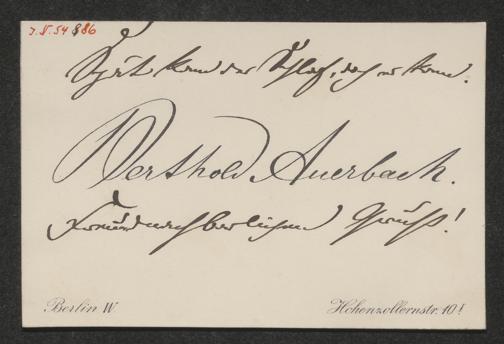 J. V. 54886
Spät kam der Schlaf, doch er kam.
Berthold Auerbach.
Freundnachbarlichen Gruß!
Berlin W
Hohenzollernstr. 10!